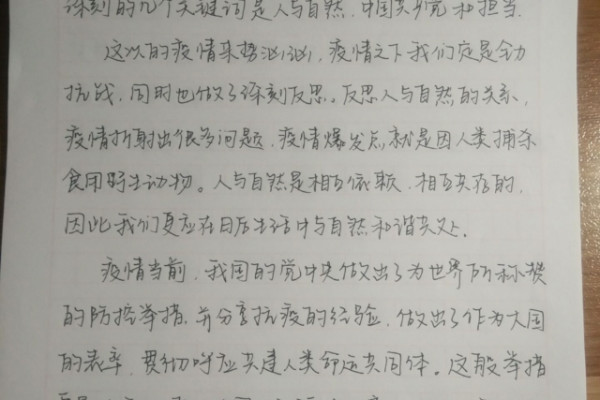 深刻的几个关键词是人与自然,中国共产党和担当.
这次的疫情来势汹汹,疫情之下我们定是全力
抗战,同时也做了深刻反思。反思人与自然的关系,
疫情折射出很多问题,疫情爆发点就是因人类捕杀
食用野生动物。人与自然是相互依赖,相互共存的,
因此我们更应在日后生活中与自然和谐共处.
疫情当前,我国的党中央做出了为世界所称赞
的防控举措,并分享抗疫的经验,做出了作为大国
的表率,贯彻呼应共建人类命运共同体。这般举措